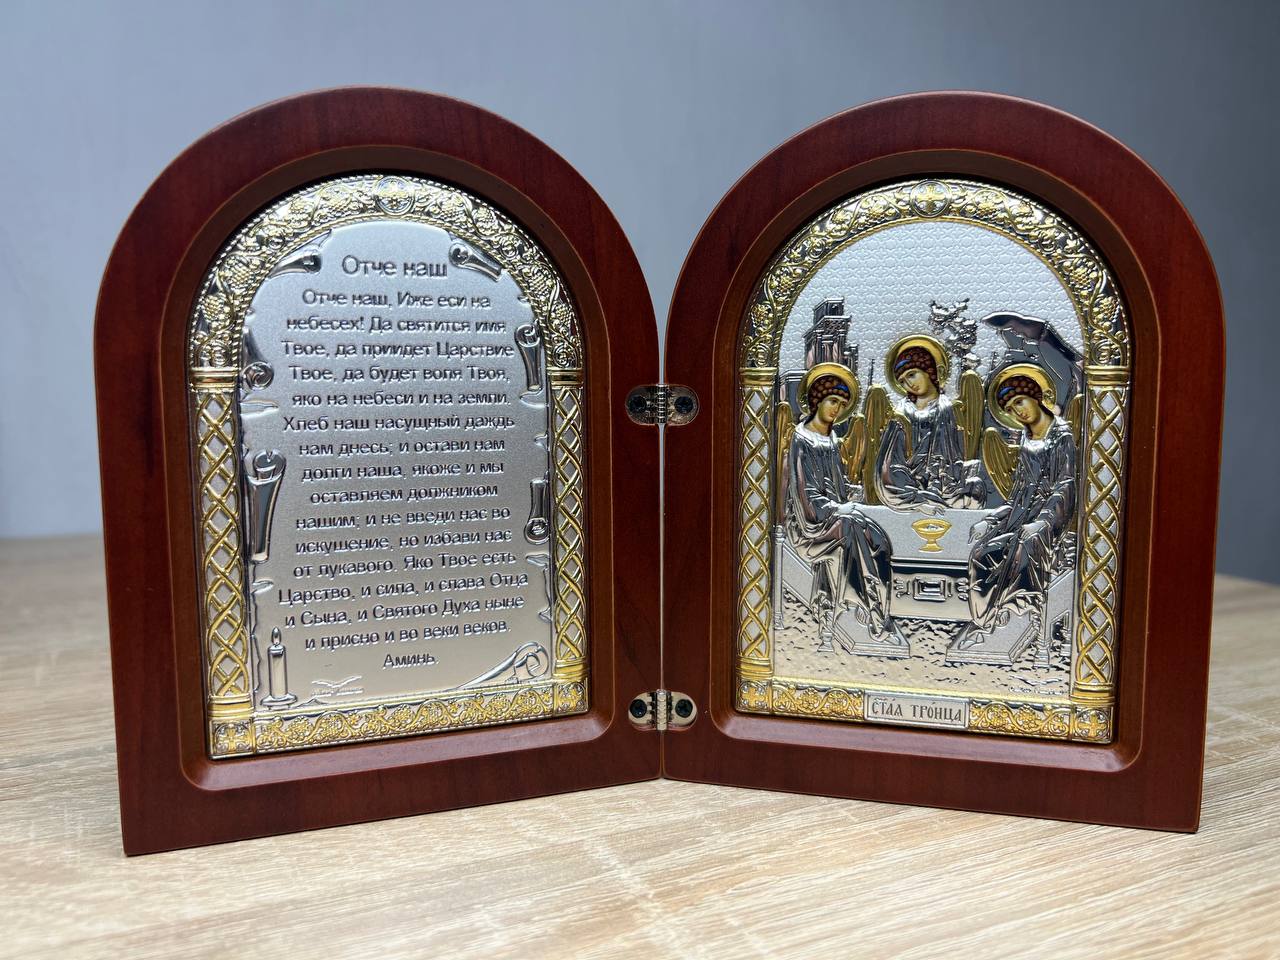 Отче наш
Отче наш, Иже еси на
небесех! Да святится имя
Твое, да приидет Царствие
Твое, да будет воля Твоя,
яко на небеси и на земли.
Хлеб наш насущный даждь
нам днесь; и остави нам
долги наша, якоже и мы
оставляем должником
нашим; и не введи нас во
искушение, но избави нас
от лукавого. Яко Твое есть
Царство, и сила, и слава Отца
и Сына, и Святого Духа ныне
и присно и во веки веков.
Аминь.
СТАЯ ТРОИЦА